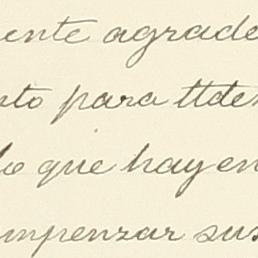 ente agrade
nto para ttden
lo que hayen
mpenzar sus